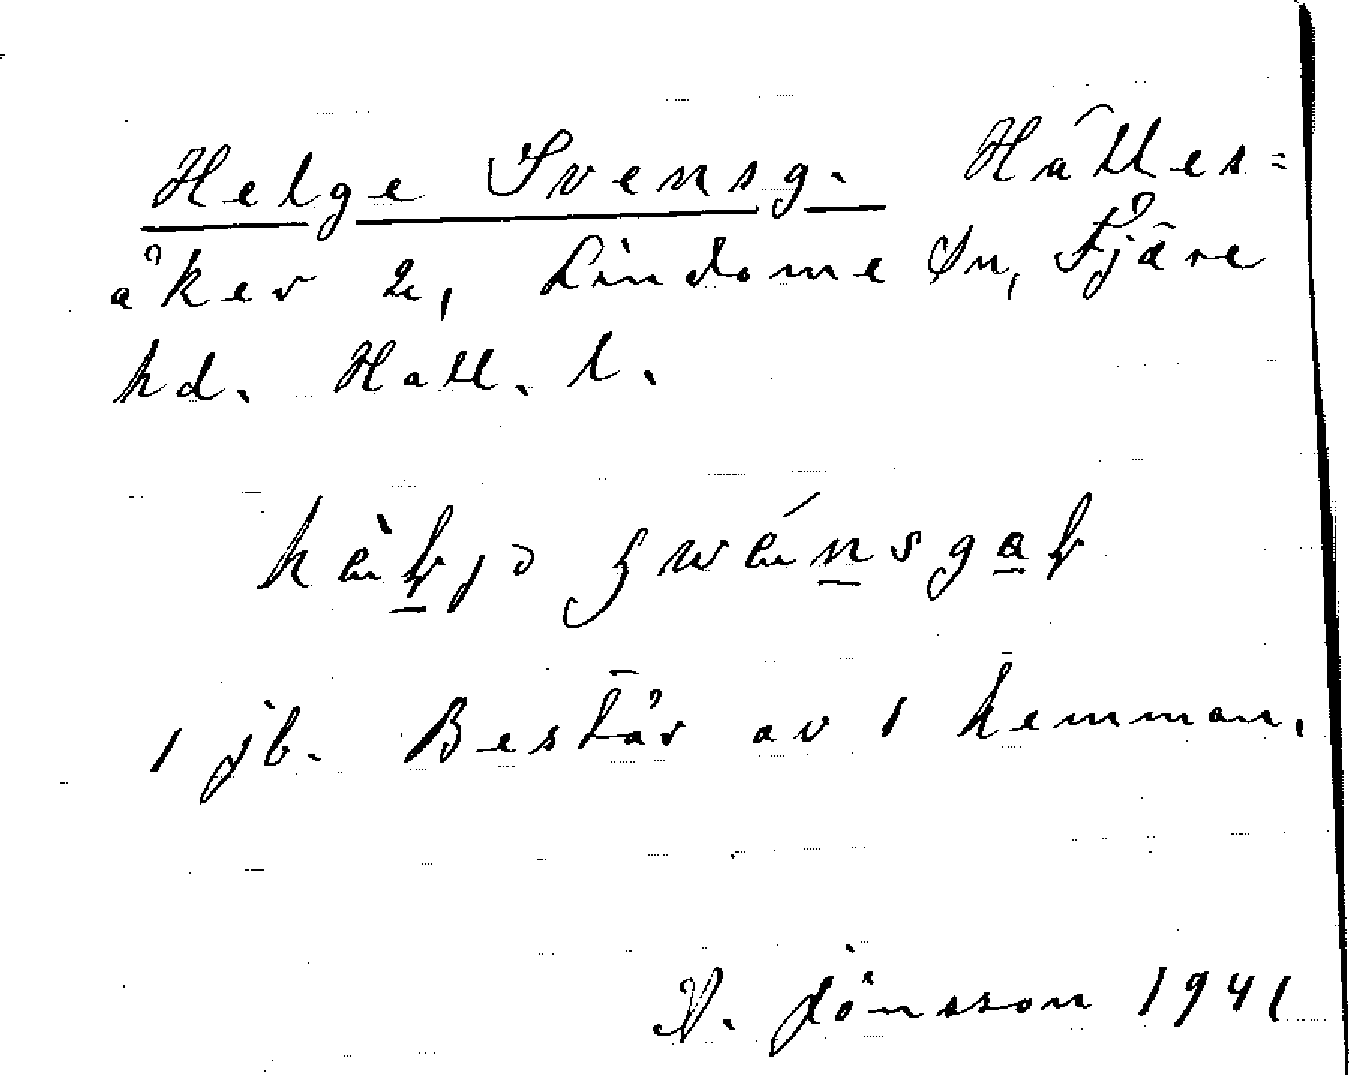 Helge Svensg. Hälles=
åker 2, Lindome sn, Fjäre
hd. Hall. l.
1 jb. Består av 1 hemman.
V. Jönsson 1941